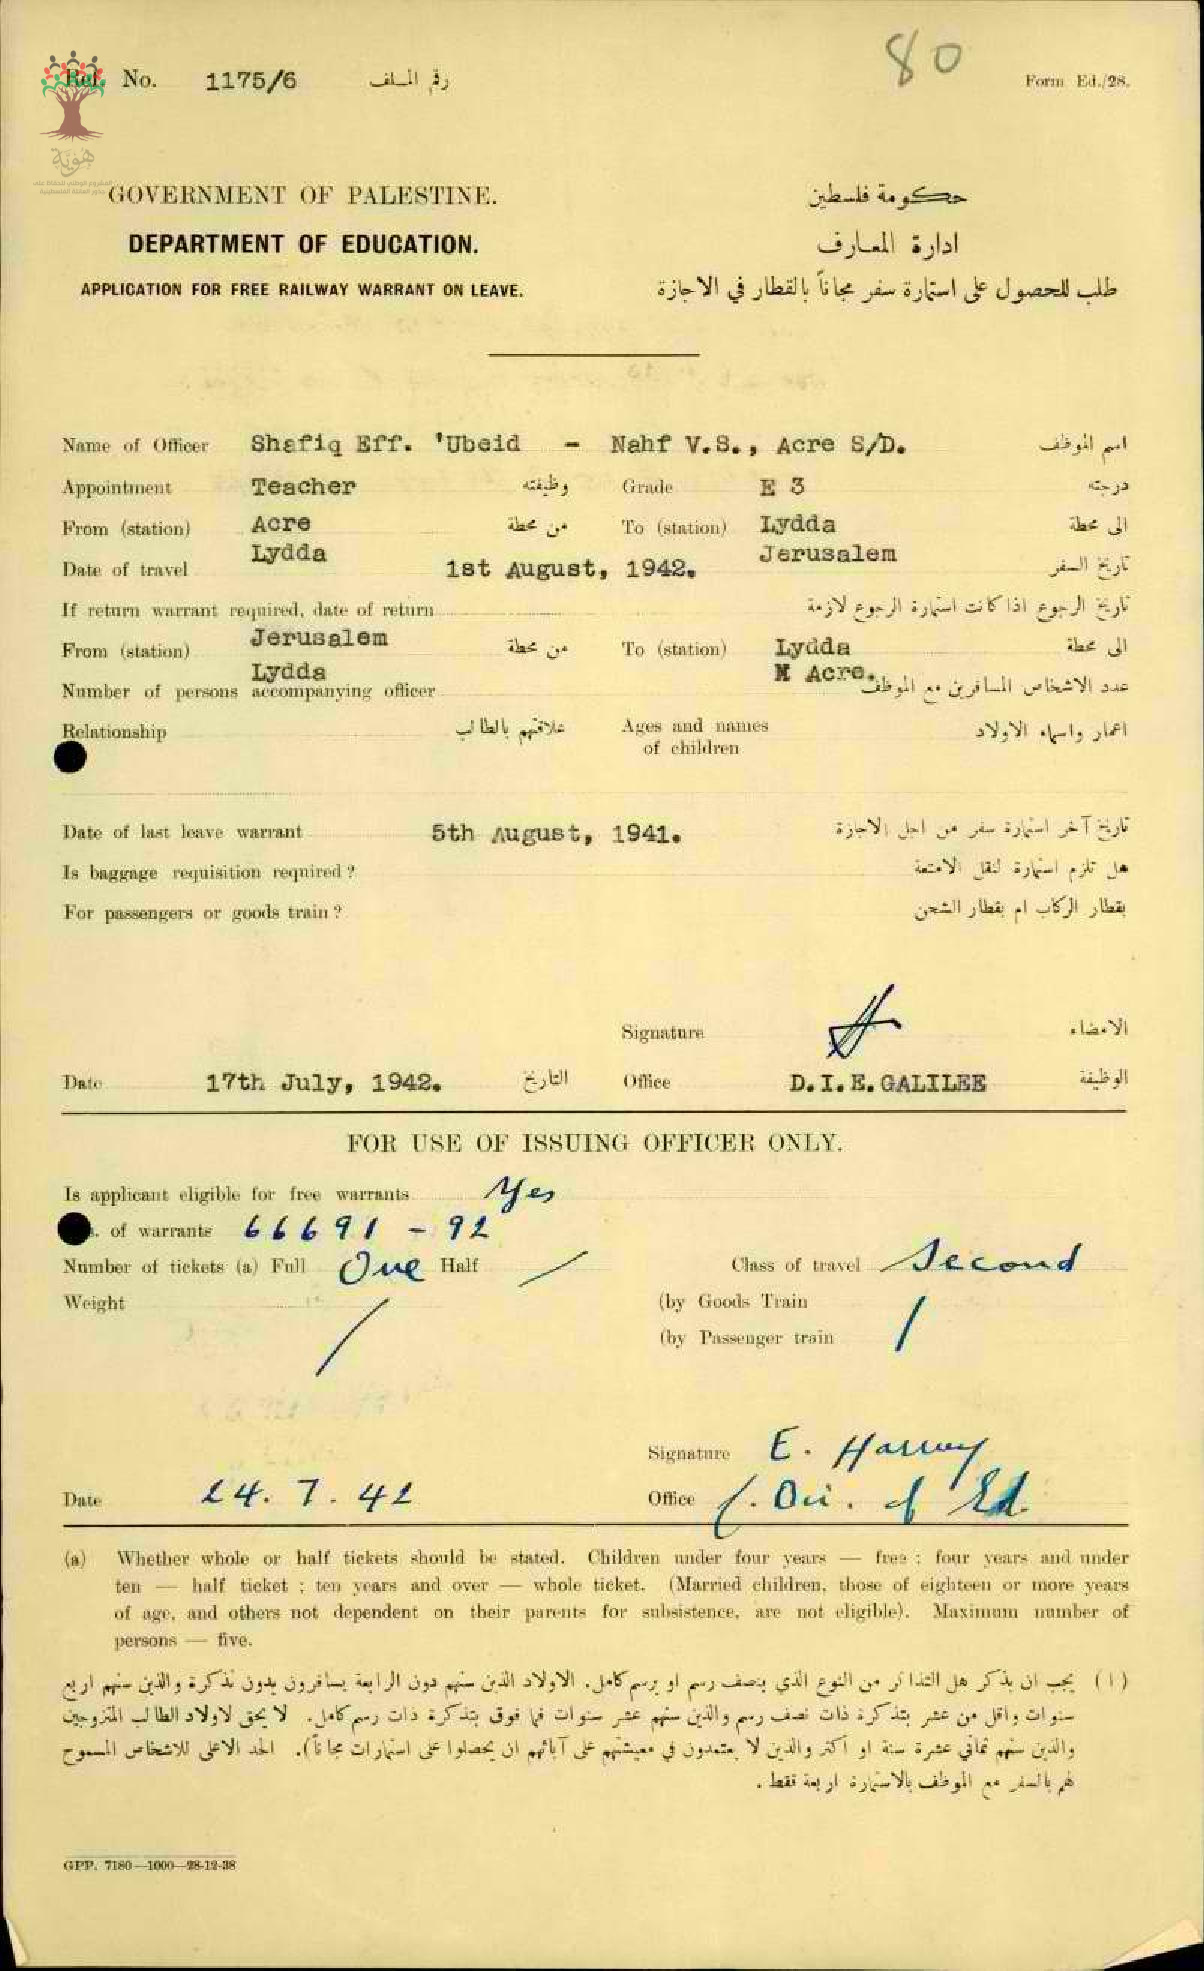 80
Ref. No. 1175/6 رقم الملف
Form Ed./28.
هُوِيَّة
GOVERNMENT OF PALESTINE. حكومة فلسطين
DEPARTMENT OF EDUCATION. ادارة المعارف
APPLICATION FOR FREE RAILWAY WARRANT ON LEAVE. طلب للحصول على استمارة سفر مجاناً بالقطار في الاجازة
Name of Officer Shafiq Eff. 'Ubeid - Nahf V.S., Acre S/D. اسم الموظف
Appointment Teacher وظيفته Grade E 3 درجته
From (station) Acre من محطة To (station) Lydda الى محطة
Lydda Jerusalem
Date of travel 1st August, 1942. تاريخ السفر
If return warrant required, date of return تاريخ الرجوع اذا كانت استمارة الرجوع لازمة
From (station) Jerusalem من محطة To (station) Lydda الى محطة
Lydda Acre.
Number of persons accompanying officer عدد الاشخاص المسافرين مع الموظف
Relationship علاقتهم بالطالب Ages and names of children اعمار واسماء الاولاد
Date of last leave warrant 5th August, 1941. تاريخ آخر استمارة سفر من اجل الاجازة
Is baggage requisition required? هل تلزم استمارة لنقل الامتعة
For passengers or goods train? بقطار الركاب ام بقطار الشحن
Signature الامضاء
Date 17th July, 1942. التاريخ Office D.I.E.GALILEE الوظيفة
FOR USE OF ISSUING OFFICER ONLY.
Is applicant eligible for free warrants Yes
of warrants 66691 - 92
Number of tickets (a) Full One Half / Class of travel Second
Weight / (by Goods Train
(by Passenger train /
Signature E. Harvey
Date 24.7.42 Office f. Dir. of Ed.
(a) Whether whole or half tickets should be stated. Children under four years — free; four years and under
ten — half ticket; ten years and over — whole ticket. (Married children, those of eighteen or more years
of age, and others not dependent on their parents for subsistence, are not eligible). Maximum number of
persons — five.
(١) يجب ان يذكر هل التذاكر من النوع الذي بنصف رسم او برسم كامل. الاولاد الذين سنهم دون الرابعة يسافرون بدون تذكرة والذين سنهم اربع
سنوات واقل من عشر بتذكرة ذات نصف رسم والذين سنهم عشر سنوات فما فوق بتذكرة ذات رسم كامل. لا يحق لاولاد الطالب المتزوجين
والذين سنهم ثماني عشرة سنة او اكثر والذين لا يعتمدون في معيشتهم على آبائهم ان يحصلوا على استمارات مجاناً). الحد الاعلى للاشخاص المسموح
لهم بالسفر مع الموظف بالاستمارة اربعة فقط.
GPP. 7180—1000—28-12-38